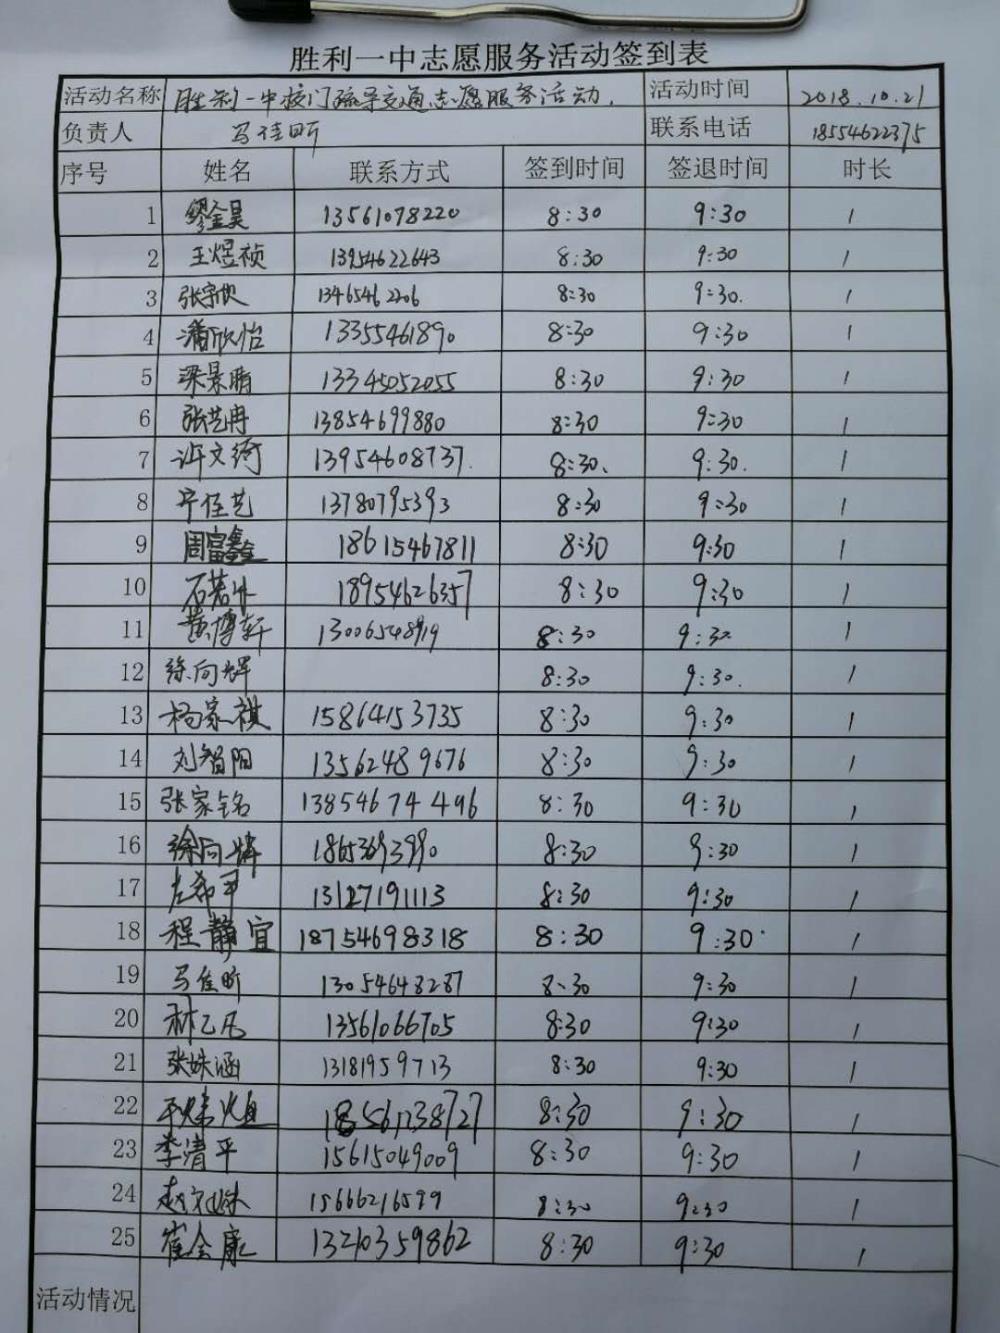 胜利一中志愿服务活动签到表
活动名称 胜利一中校门疏导交通志愿服务活动. 活动时间 2018.10.21
负责人 马佳昕 联系电话 18554622375
序号 姓名 联系方式 签到时间 签退时间 时长
1 缪金昊 13561078220 8:30 9:30 1
2 王煜祯 13954622643 8:30 9:30 1
3 张宇欣 13465462206 8:30 9:30. 1
4 潘欣怡 13355461890 8:30 9:30 1
5 梁景晴 13345052055 8:30 9:30 1
6 张艺冉 13854699880 8:30 9:30 1
7 许文绮 13954608737. 8:30、 9:30. 1
8 辛佳艺 13780795393 8:30 9:30 1
9 周富鑫 18615467811 8:30 9:30 1
10 石若冰 18954626357 8:30 9:30 1
11 黄博轩 8:30 9:30 1
12 徐向辉 8:30 9:30. 1
13 杨家祺 15864153735 8:30 9:30 1
14 刘智阳 13562489676 8:30 9:30 1
15 张家铭 13854674496 8:30 9:30 1
16 8:30 9:30 1
17 左希平 13127191113 8:30 9:30 1
18 程静宜 18754698318 8:30 9:30 1
19 马佳昕 13054648287 8:30 9:30 1
20 林乙凡 13561066705 8:30 9:30 1
21 张姝涵 13181959713 8:30 9:30 1
22 18561238727 8:30 9:30 1
23 李清平 15615049009 8:30 9:30 1
24 15666216599 8:30 9:30 1
25 崔会康 13210359862 8:30 9:30 1
活动情况